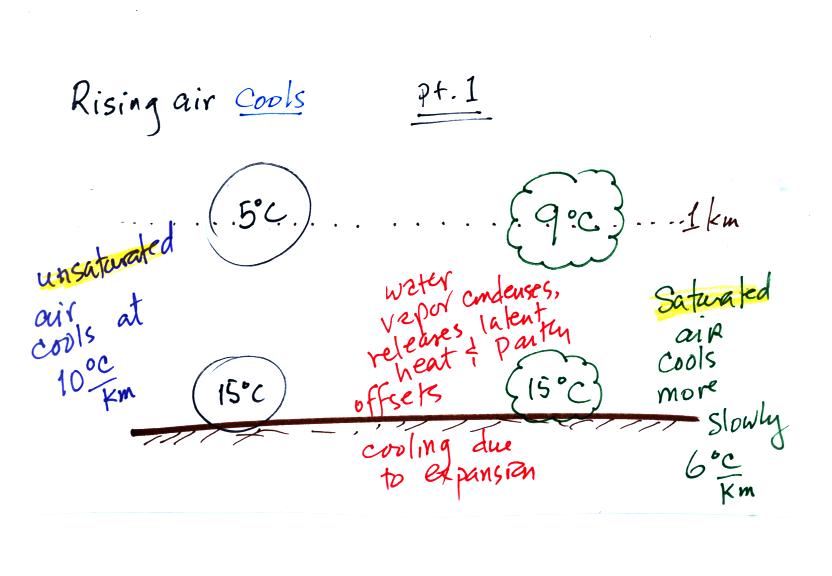 Rising air cools
pt. 1
5°C
9°C
1 km
unsaturated
air
cools at
10°C
km
water
vapor condenses,
releases latent
heat & partly
offsets
cooling due
to expansion
Saturated
air
cools
more
slowly
6°C
km
15°C
15°C